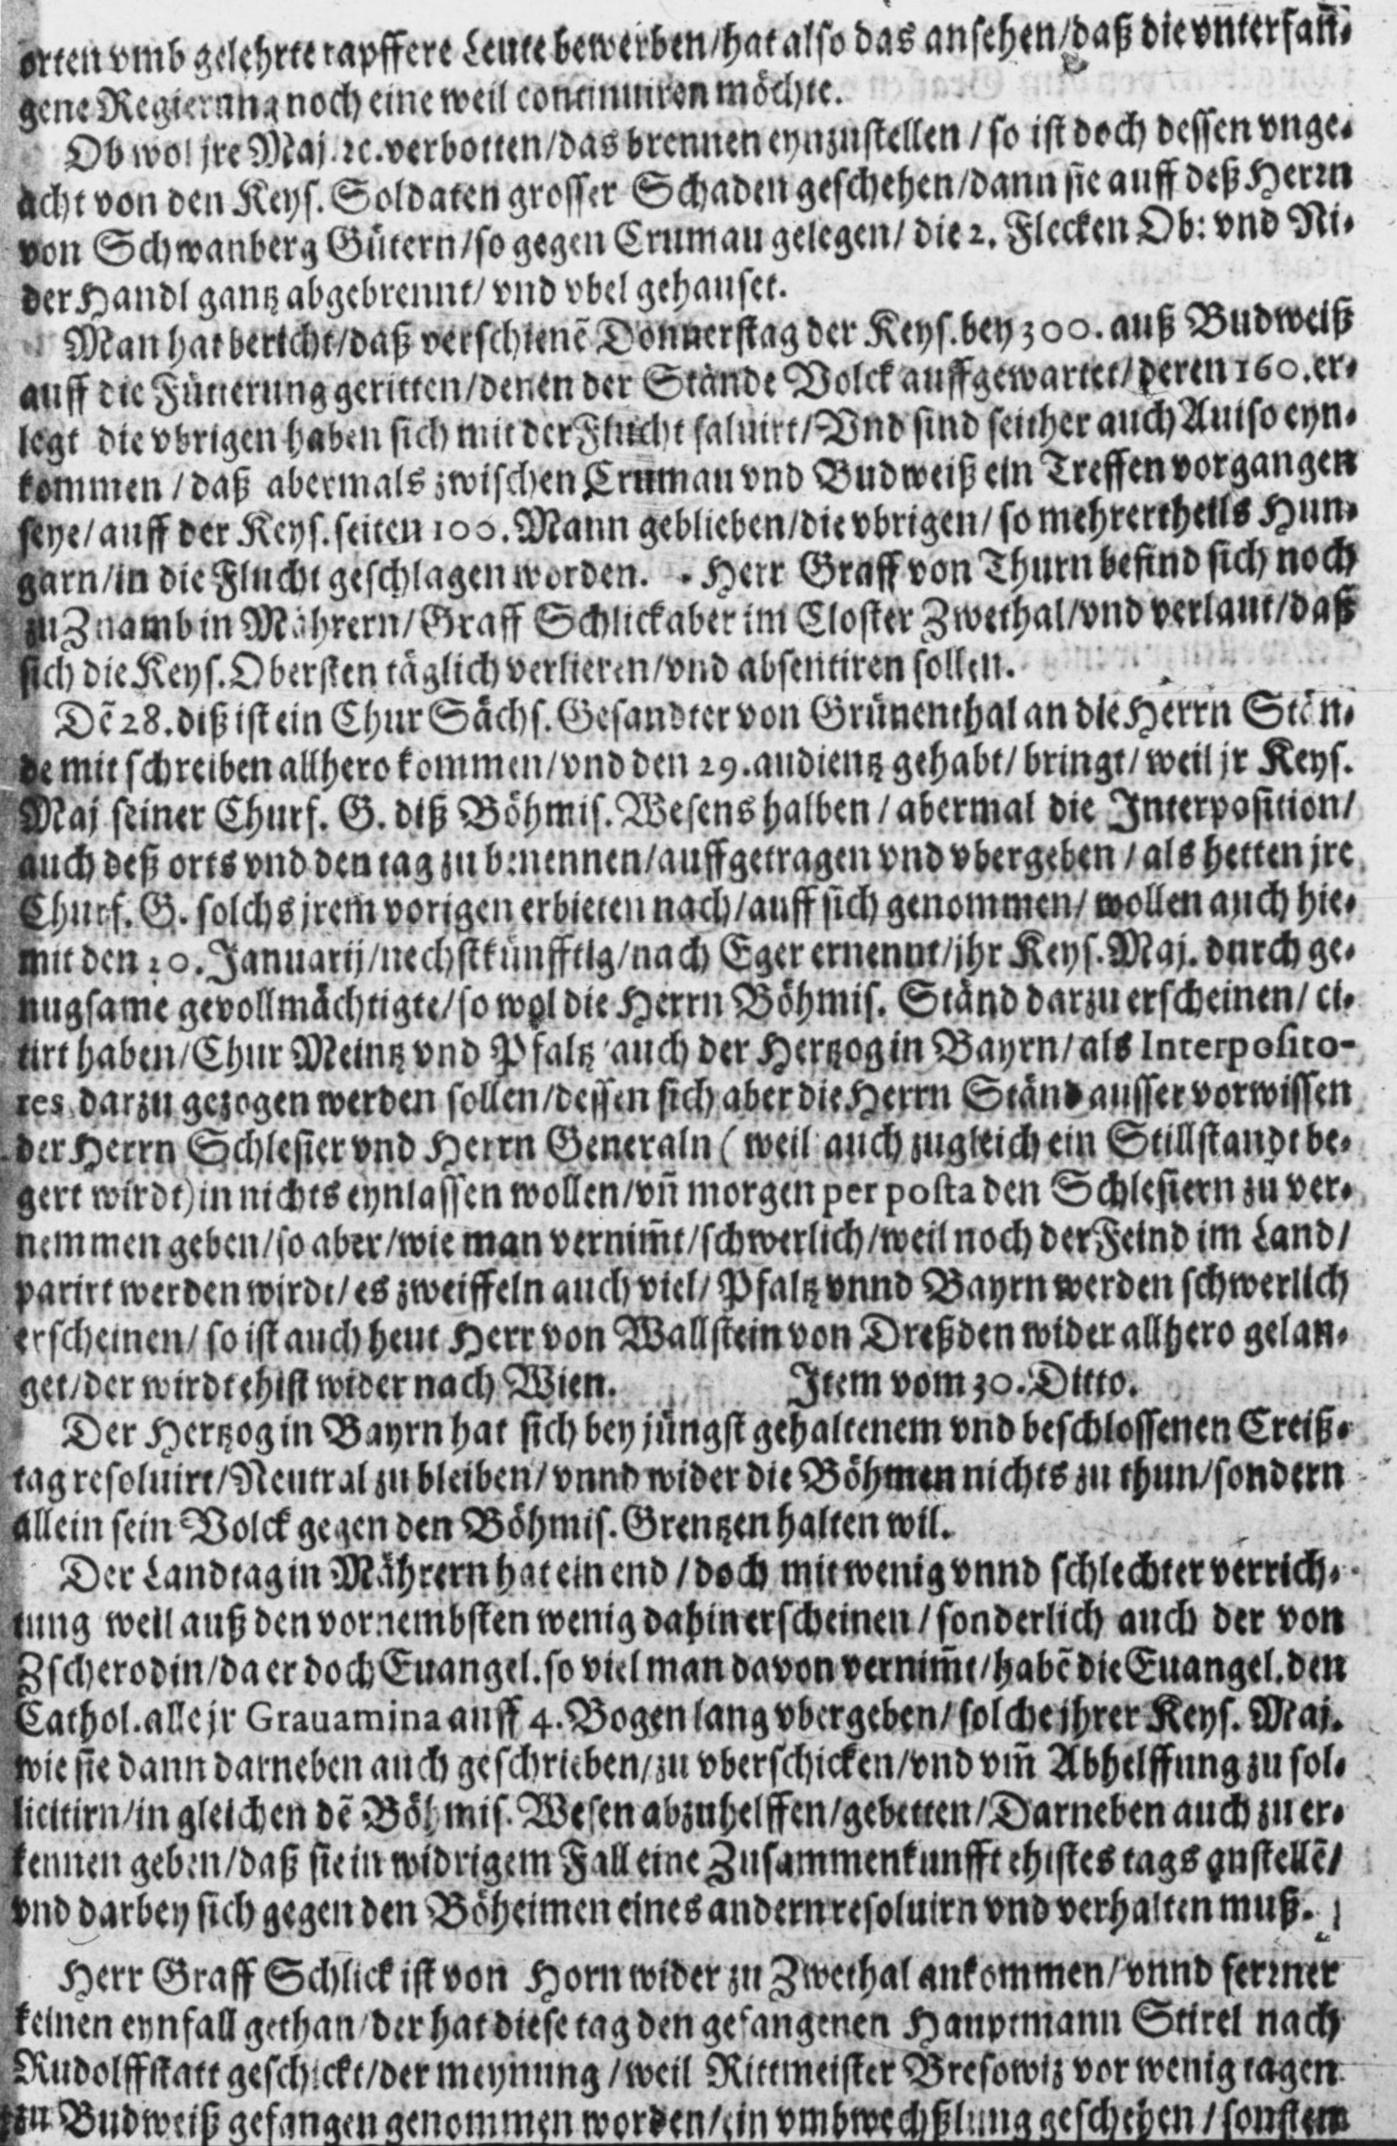 orten vmb gelehrte tapffere Leute bewerben/hat also das ansehen/daß die vnterfañ-
gene Regierung noch eine weil continuiren möchte.
Ob wol jre Maj. ꝛc. verbotten/das brennen eynzustellen / so ist doch dessen vnge-
acht von den Keys. Soldaten grosser Schaden geschehen/dann sie auff deß Herrn
von Schwanberg Gütern/so gegen Crumau gelegen/ die 2. Flecken Ob: vnd Ni-
der Handl gantz abgebrennt/ vnd vbel gehauset.
Man hat bericht/daß verschienē Donnerstag der Keys. bey 300. auß Budweiß
auff die Fütterung geritten/denen der Stände Volck auffgewartet/deren 160. er-
legt die vbrigen haben sich mit der Flucht saluirt/Vnd sind seither auch Auiso eyn-
kommen / daß abermals zwischen Crumau vnd Budweiß ein Treffen vorgangen
seye/auff der Keys. seiten 100. Mann geblieben/die vbrigen/ so mehrertheils Hun-
garn/in die Flucht geschlagen worden. Herr Graff von Thurn befind sich noch
zu Znamb in Mährern/Graff Schlick aber im Closter Zwethal/vnd verlaut/daß
sich die Keys. Obersten täglich verlieren/vnd absentiren sollen.
Dē 28. diß ist ein Chur Sächs. Gesandter von Grünenthal an die Herrn Stän-
de mit schreiben allhero kommen/vnd den 29. audientz gehabt/ bringt/ weil jr Keys.
Maj seiner Churf. G. diß Böhmis. Wesens halben / abermal die Interposition/
auch deß orts vnd den tag zu benennen/auffgetragen vnd vbergeben / als hetten jre
Churf. G. solchs jrem vorigen erbieten nach/auff sich genommen/ wollen auch hie-
mit den 20. Januarij/nechstkünfftig/nach Eger ernennt/jhr Keys. Maj. durch ge-
nugsame gevollmächtigte/so wol die Herrn Böhmis. Ständ darzu erscheinen/ ci-
tirt haben/Chur Meintz vnd Pfaltz auch der Hertzog in Bayrn/ als Interposito-
res darzu gezogen werden sollen/dessen sich aber die Herrn Ständ ausser vorwissen
der Herrn Schlesier vnd Herrn Generaln ( weil auch zugleich ein Stillstandt be-
gert wirdt) in nichts eynlassen wollen/vñ morgen per posta den Schlesiern zu ver-
nemmen geben/so aber/wie man vernim̃t/schwerlich/weil noch der Feind im Land/
parirt werden wirdt/ es zweiffeln auch viel/ Pfaltz vnnd Bayrn werden schwerlich
erscheinen/ so ist auch heut Herr von Wallstein von Dreßden wider allhero gelan-
get/der wirdt ehist wider nach Wien. Item vom 30. Ditto.
Der Hertzog in Bayrn hat sich bey jüngst gehaltenem vnd beschlossenen Creiß-
tag resoluirt/Neutral zu bleiben/ vnnd wider die Böhmen nichts zu thun/sondern
allein sein Volck gegen den Böhmis. Grentzen halten wil.
Der Landtag in Mährern hat ein end / doch mit wenig vnnd schlechter verrich-
tung weil auß den vornembsten wenig dahin erscheinen / sonderlich auch der von
Zscherodin/da er doch Euangel. so viel man davon vernim̃t/habē die Euangel. den
Cathol. alle jr Grauamina auff 4. Bogen lang vbergeben/ solche jhrer Keys. Maj.
wie sie dann darneben auch geschrieben/zu vberschicken/vnd vm̃ Abhelffung zu sol-
licitirn/in gleichen dē Böhmis. Wesen abzuhelffen/gebetten/Darneben auch zu er-
kennen geben/daß sie in widrigem Fall eine Zusammenkunfft ehistes tags anstellē/
vnd darbey sich gegen den Böheimen eines andern resoluirn vnd verhalten muß.
Herr Graff Schlick ist von Horn wider zu Zwethal ankommen/ vnnd ferrner
keinen eynfall gethan/der hat diese tag den gefangenen Hauptmann Stirel nach
Rudolffstatt geschickt/der meynung / weil Rittmeister Bresowiz vor wenig tagen
zu Budweiß gefangen genommen worden/ein vmbwechßlung geschehen / sonsten